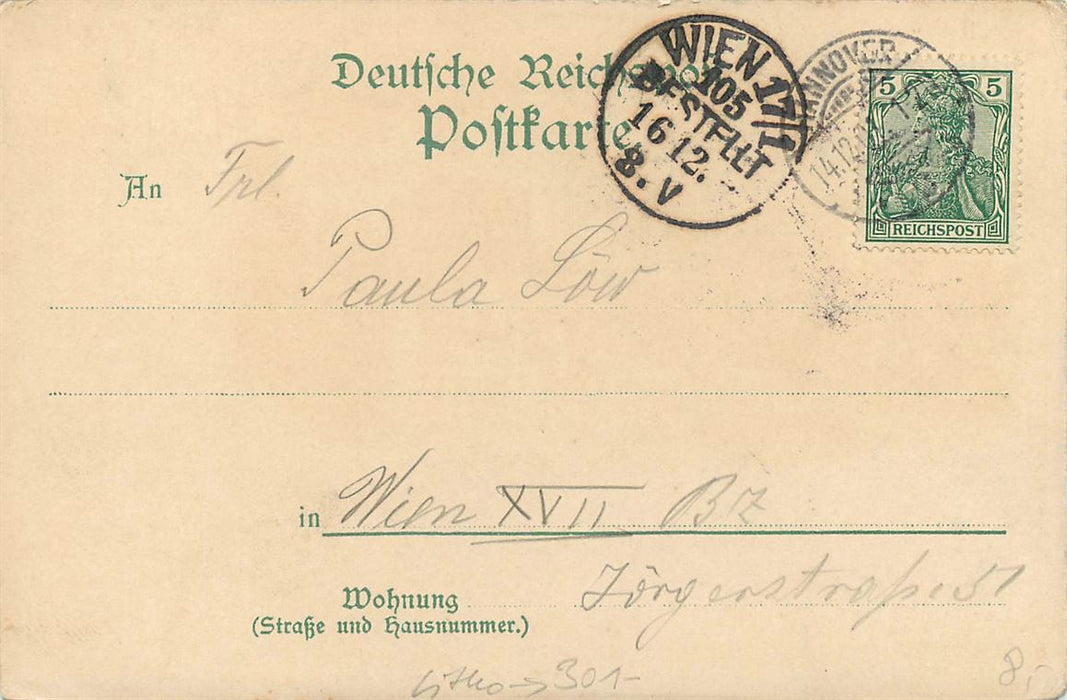 Deutsche Reichspost
Postkarte
WIEN 17/1
105
BESTELLT
16 12.
8. V
HANNOVER
14.12.
5 5
REICHSPOST
An Frl.
Paula Löw
in Wien XVII BZ
Wohnung Jörgerstraße 51
(Straße und Hausnummer.)
Litho → 301-
8,-